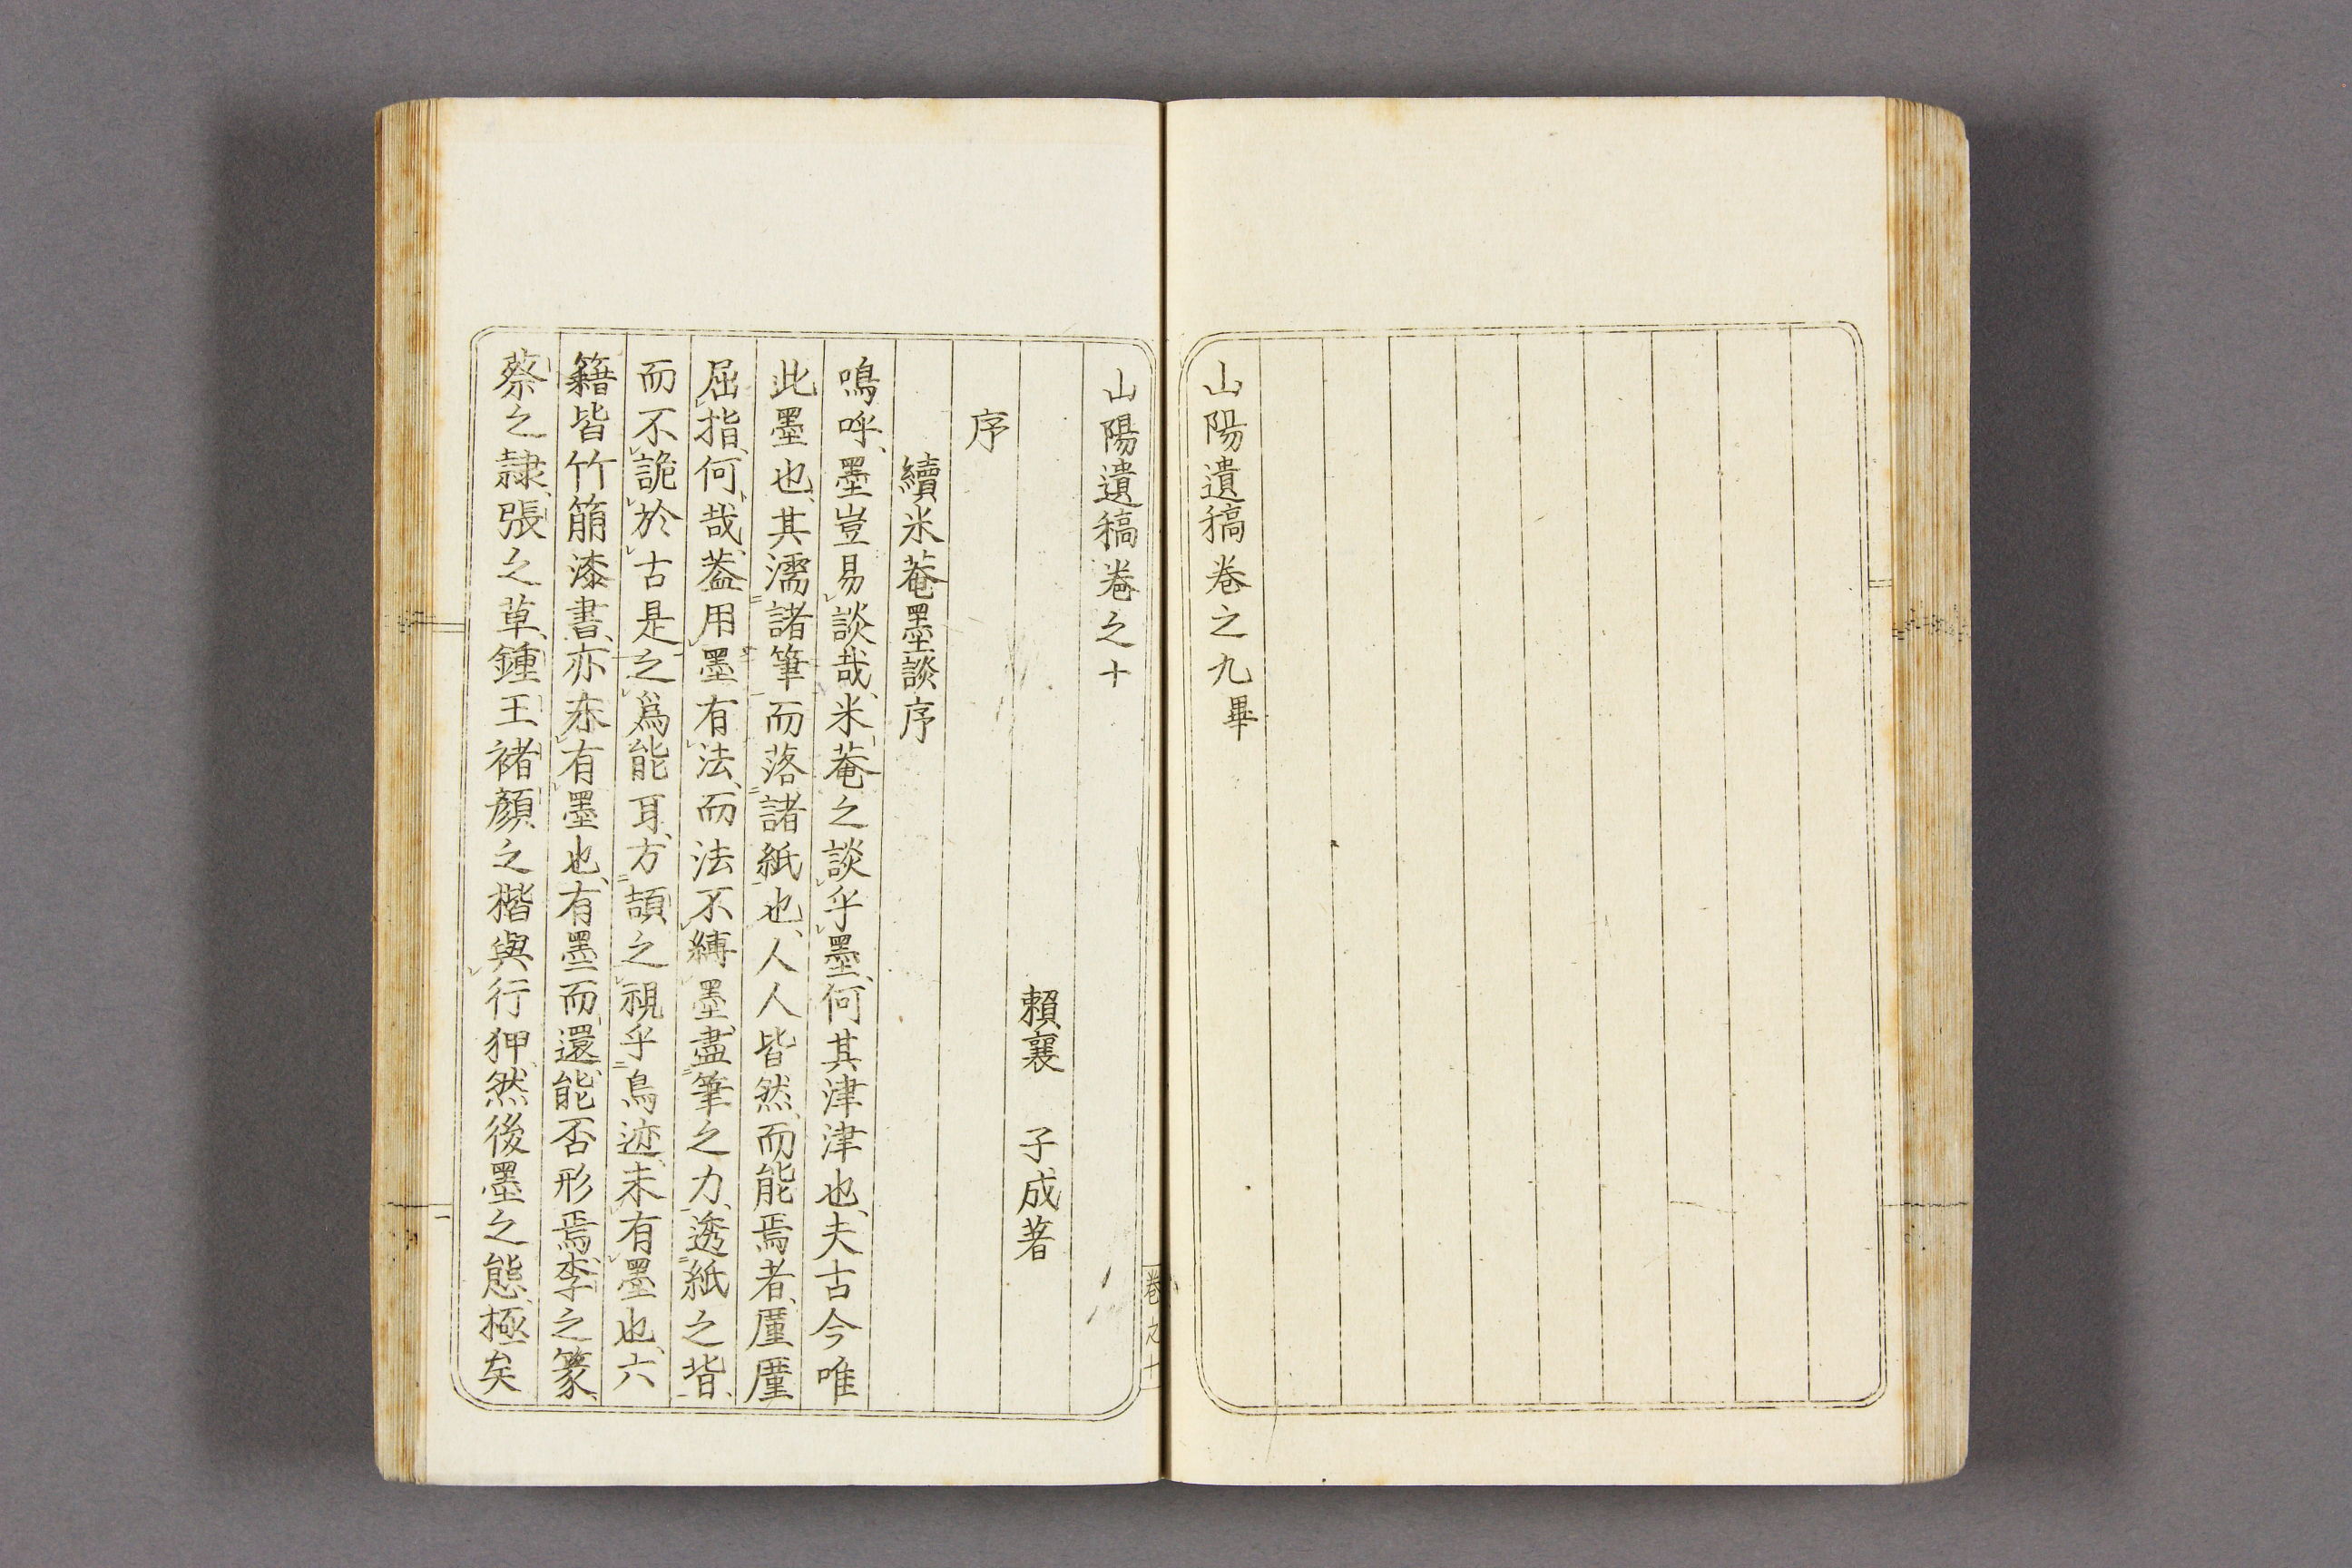 山陽遺稿卷之九畢
山陽遺稿卷之十
賴襄 子成著
序
續米菴墨談序
嗚呼、墨豈易談哉、米菴之談乎墨、何其津津也、夫古今唯
此墨也、其濡諸筆而落諸紙也、人人皆然、而能焉者、厪厪
屈指、何哉、葢用墨有法、而法不縛墨、盡筆之力、透紙之背、
而不詭於古是之爲能耳、方頡之視乎鳥迹、未有墨也、六
籍皆竹箾漆書、亦忝有墨也、有墨而還、能否形焉、李之篆、
蔡之隷、張之草、鍾王褚顏之楷與行狎、然後墨之態極矣
卷之十